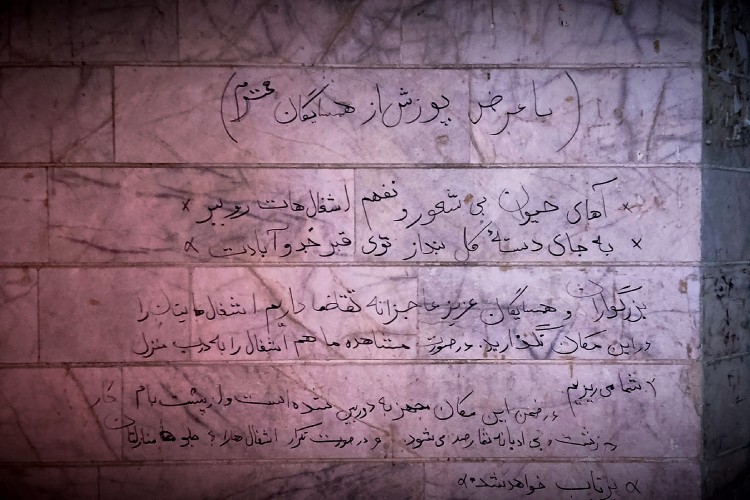 (با عرض پوزش از همسایگان محترم)
× آهای حیوان بی شعور و نفهم اشغال هات رو ببر ×
× به جای دسته گل بنداز توی قبر جد و آبادت ×
بزرگواران و همسایگان عزیز عاجزانه تقاضا داریم اشغال هایتان را
در این مکان نگذارید. در صورت مشاهده ما هم اشغال را به درب منزل
شما می ریزیم
در ضمن این مکان مجهز به دوربین شده است و از پشت بام
زشت و بی ادبانه رصد می شود. و در صورت تکرار اشغال ها جلو منازلتان
پرتاب خواهد شد.